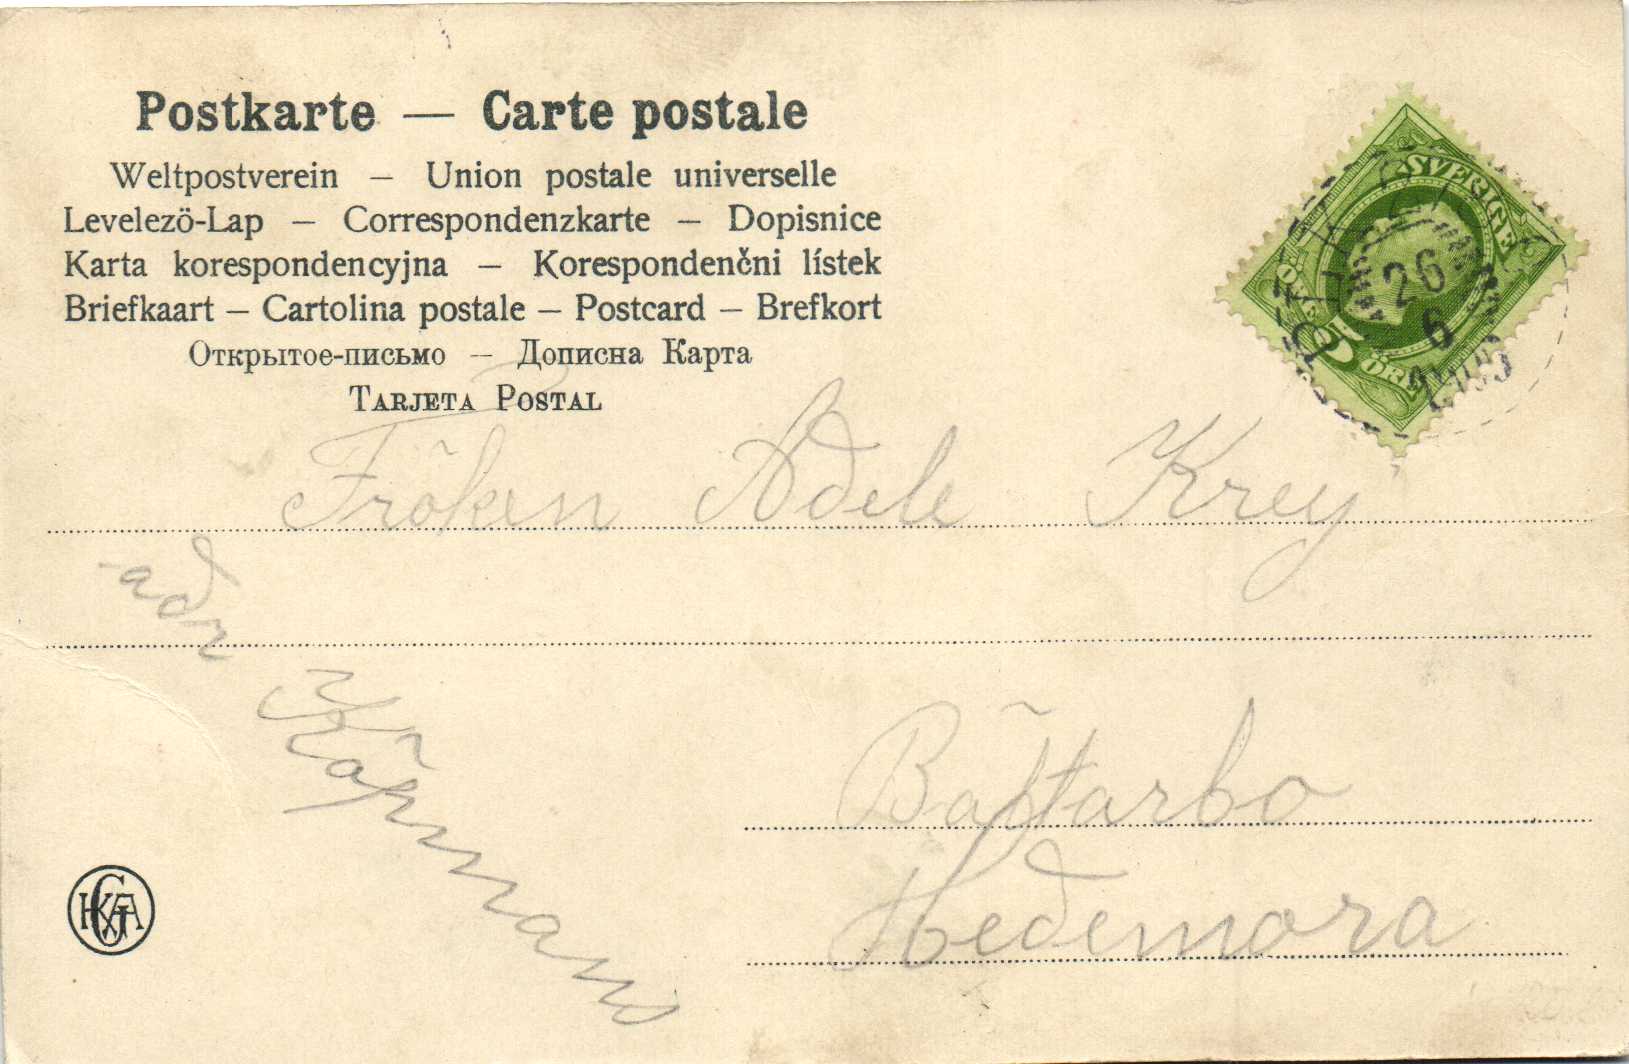 Postkarte — Carte postale
Weltpostverein – Union postale universelle
Levelezö-Lap – Correspondenzkarte – Dopisnice
Karta korespondencyjna – Korespondenčni lístek
Briefkaart – Cartolina postale – Postcard – Brefkort
Открытое-письмо – Дописна Карта
Tarjeta Postal
SVERIGE
5 ÖRE
26
6
1905
Fröken Adele Krey
adr
Bäštarbo
Hedemora